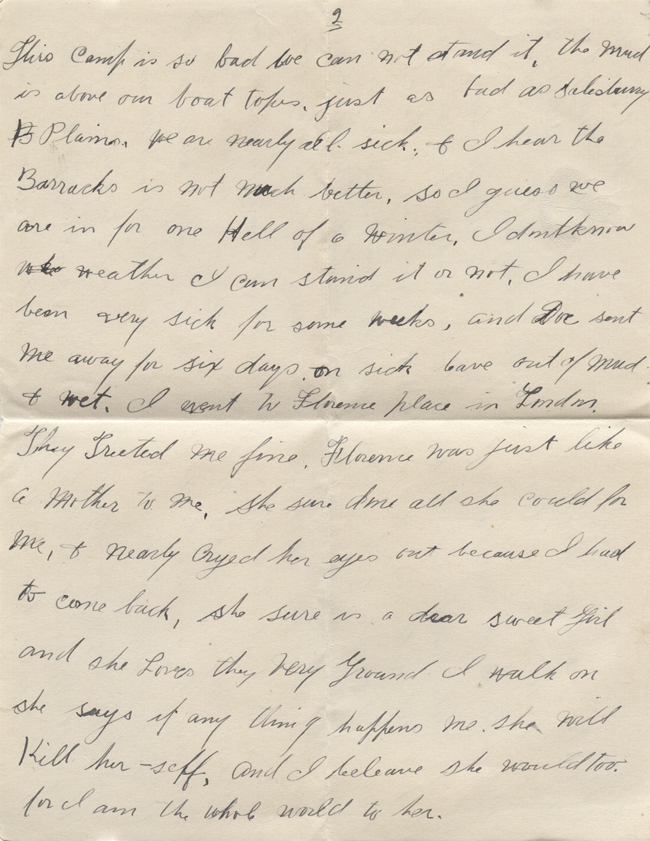 2
This Camp is so bad we can not stand it, the mud
is above our boat topes. just as bad as Salisbury
Plains. we are nearly all sick, & I hear the
Barracks is not much better, so I guess we
are in for one Hell of a Winter, I dont know
weather I can stand it or not, I have
been very sick for some weeks, and Doc sent
me away for six days on sick leave out of mud
& wet. I went to Florence place in London.
They Treeted me fine. Florence was just like
a Mother to me, she sure done all she could for
me, & nearly Cryed her eyes out because I had
to come back, she sure is a dear sweet Girl
and she Loves they very Ground I walk on
she says if any thing happens me she will
Kill her-self, and I beleave she would too.
for I am the whole world to her.